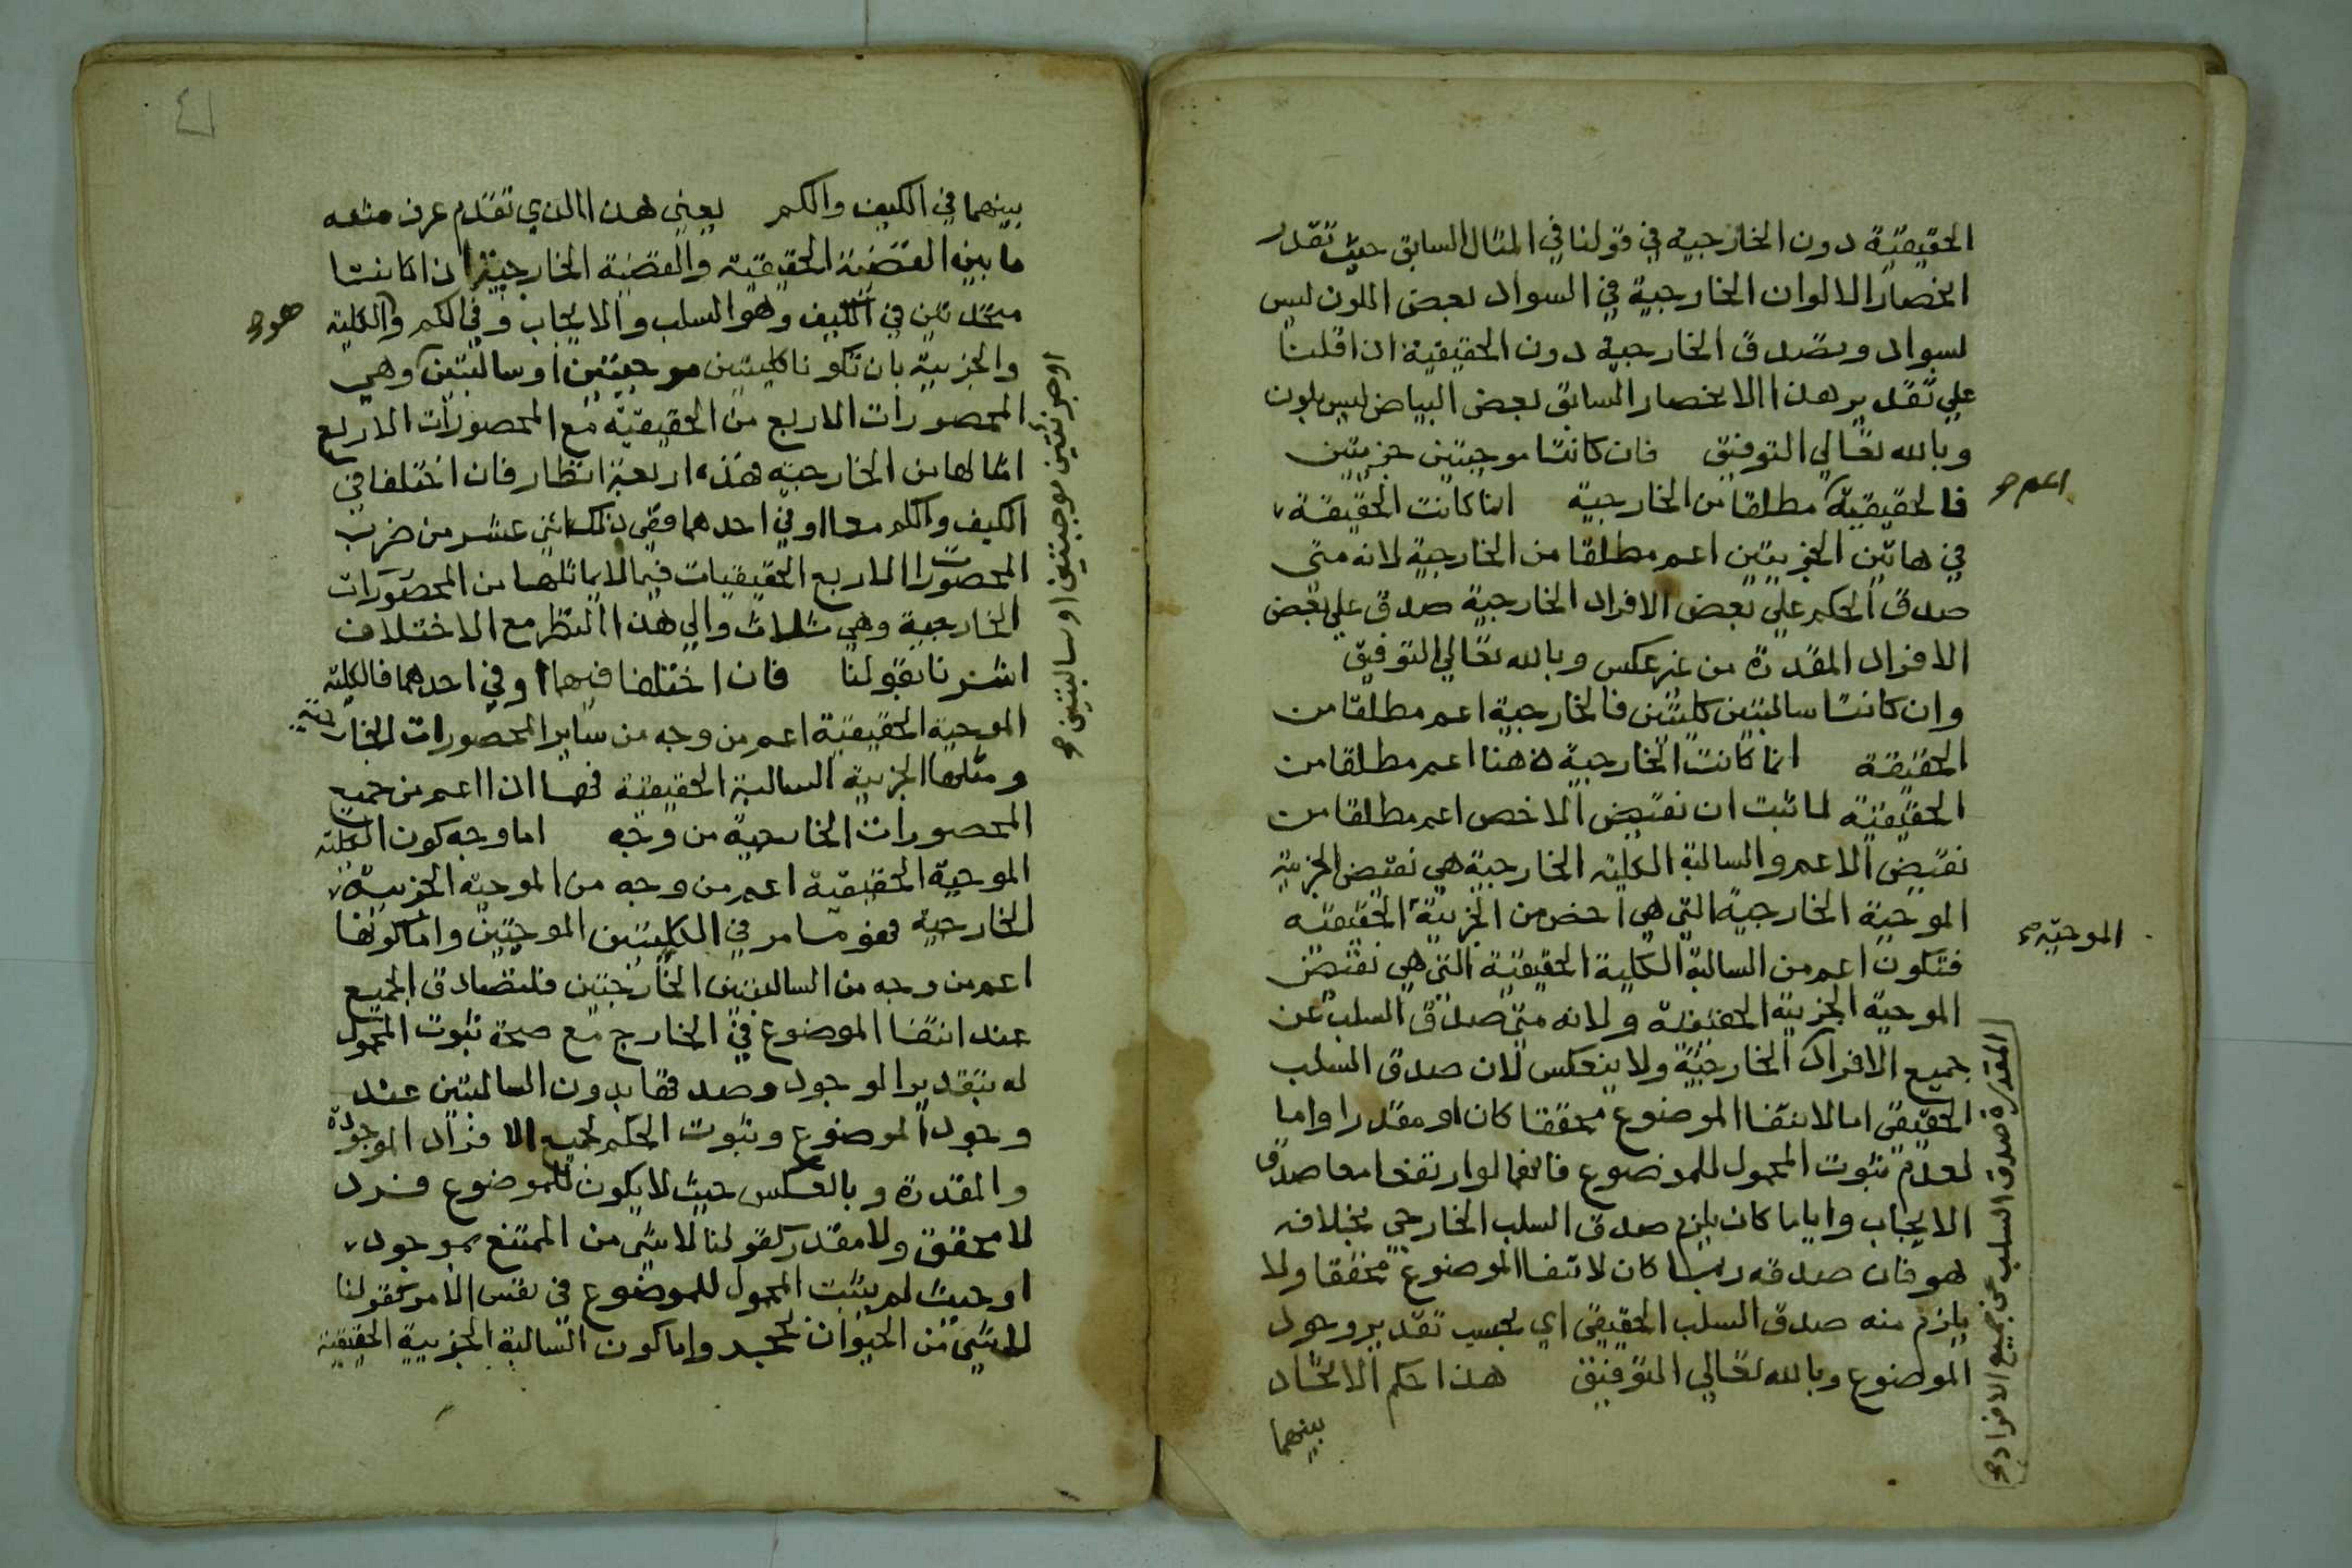 الحقيقية دون الخارجية في قولنا في المثال السابق حيث تقدر
انحصار الالوان الخارجية في السواد بعض الملون ليس
بسواد ويصدق الخارجية دون الحقيقية اذا قلنا
علي تقدير هذا الانحصار السابق بعض البياض ليس بلون
وبالله تعالي التوفيق فان كانتا موجبتين جزييتين
فالحقيقية مطلقا من الخارجية انما كانت الحقيقية
اعم صح
في هاتين الجزييتين اعم مطلقا من الخارجية لانه متى
صدق الحكم علي بعض الافراد الخارجية صدق علي بعض
الافراد المقدرة من غير عكس وبالله تعالي التوفيق
وان كانتا سالبتين كليتين فالخارجية اعم مطلقا من
الحقيقية انما كانت الخارجية هنا اعم مطلقا من
الحقيقية لما ثبت ان نقيض الاخص اعم مطلقا من
نقيض الاعم والسالبة الكلية الخارجية هي نقيض الجزيية
الموجبة الخارجية التي هي اخص من الجزيية الحقيقية
الموجبة صح
فتكون اعم من السالبة الكلية الحقيقية التي هي نقيض
الموجبة الجزيية الحقيقية ولانه متى صدق السلب عن
جميع الافراد الخارجية ولا ينعكس لان صدق السلب
المقدرة صدق السلب عن جميع الافراد صح
الحقيقي اما لانتفا الموضوع محققا كان او مقدرا واما
لعدم ثبوت المحمول للموضوع فانهما لو ارتفعا معا صدق
الايجاب وايا ما كان يلزم صدق السلب الخارجي بخلافه
هو فان صدقه ربما كان لانتفا الموضوع محققا ولا
يلزم منه صدق السلب الحقيقي اي بحسب تقدير وجود
الموضوع وبالله تعالي التوفيق هذا حكم الاتحاد
بينهما
٤١
بينهما في الكيف والكم يعني هذا الذي تقدم عرف منه
ما بين القضية الحقيقية والقضية الخارجية اذا كانتا
متحدتين في الكيف وهو السلب والايجاب وفي الكم والكلية
هو صح
والجزيية بان تكونا كليتين موجبتين او سالبتين وهي
او جزئيتين موجبتين او سالبتين صح
المحصورات الاربع من الحقيقية مع المحصورات الاربع
امثالها من الخارجية هذه اربعة انظار فان اختلفا في
الكيف والكم معا او في احدهما ففي ذلك اثني عشر من ضرب
المحصورات الاربع الحقيقيات فيما لا يماثلها من المحصورات
الخارجية وهي ثلاث والي هذا النظر مع الاختلاف
اشرنا بقولنا فان اختلفا فيهما او في احدهما فالكلية
الموجبة الحقيقية اعم من وجه من ساير المحصورات الخارجية
ومثلها الجزيية السالبة الحقيقية فهما اذا اعم من جميع
المحصورات الخارجية من وجه اما وجه كون الكلية
الموجبة الحقيقية اعم من وجه من الموجبة الجزيية
الخارجية فهو ما مر في الكليتين الموجبتين واما كونها
اعم من وجه من السالبتين الخارجيتين فلتصادق الجميع
عند انتفا الموضوع في الخارج مع صحة ثبوت المحمول
له بتقدير الوجود وصدقها بدون السالبتين عند
وجود الموضوع وثبوت الحكم لجميع الافراد الموجودة
والمقدرة وبالعكس حيث لا يكون للموضوع فرد
لا محقق ولا مقدر كقولنا لا شي من الممتنع بموجود
او حيث لم يثبت المحمول للموضوع في نفس الامر كقولنا
لا شي من الحيوان بحجر واما كون السالبة الجزيية الحقيقية